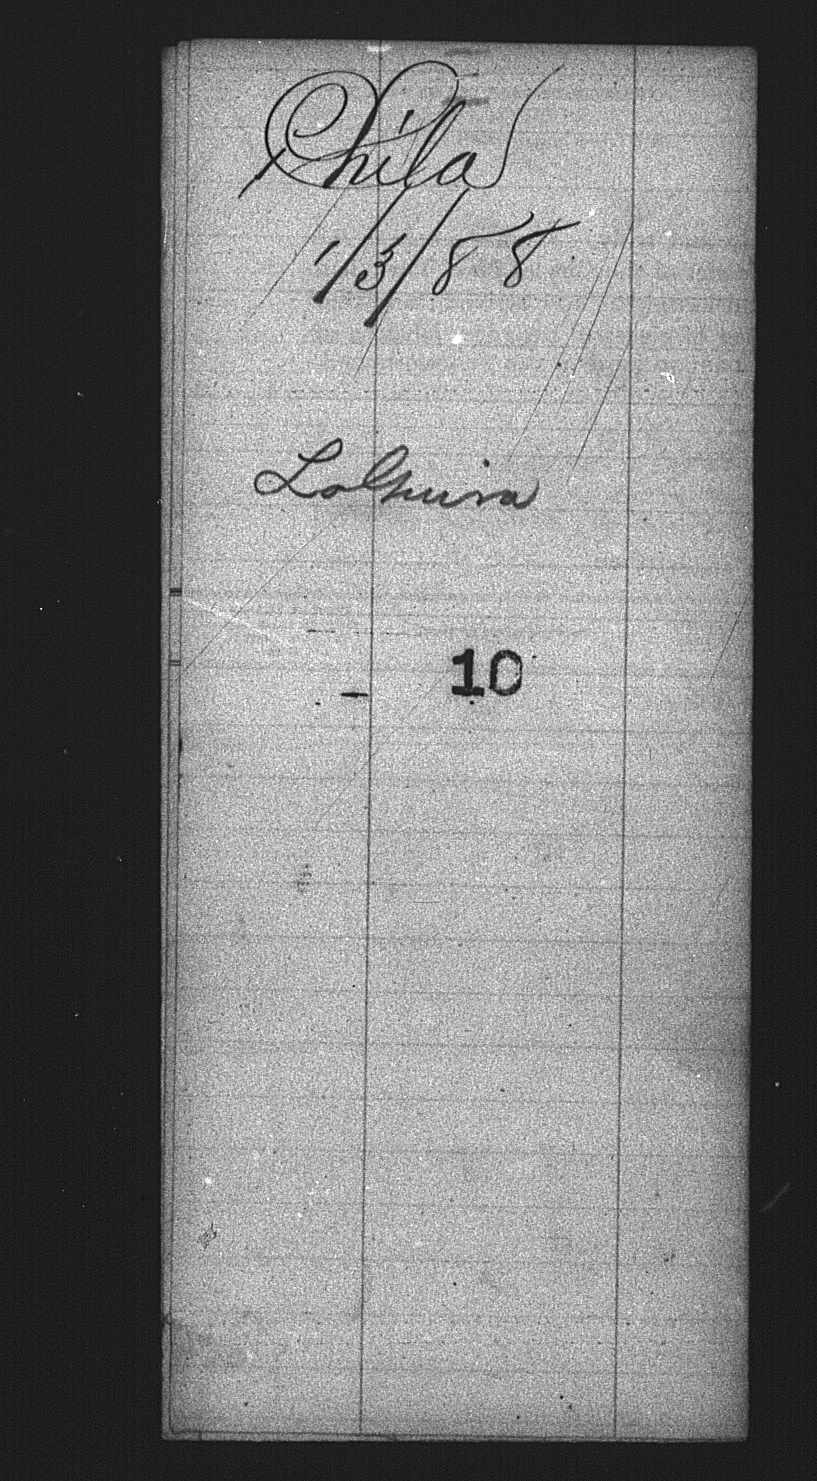 Phila
1/3/88
LaGuira
10